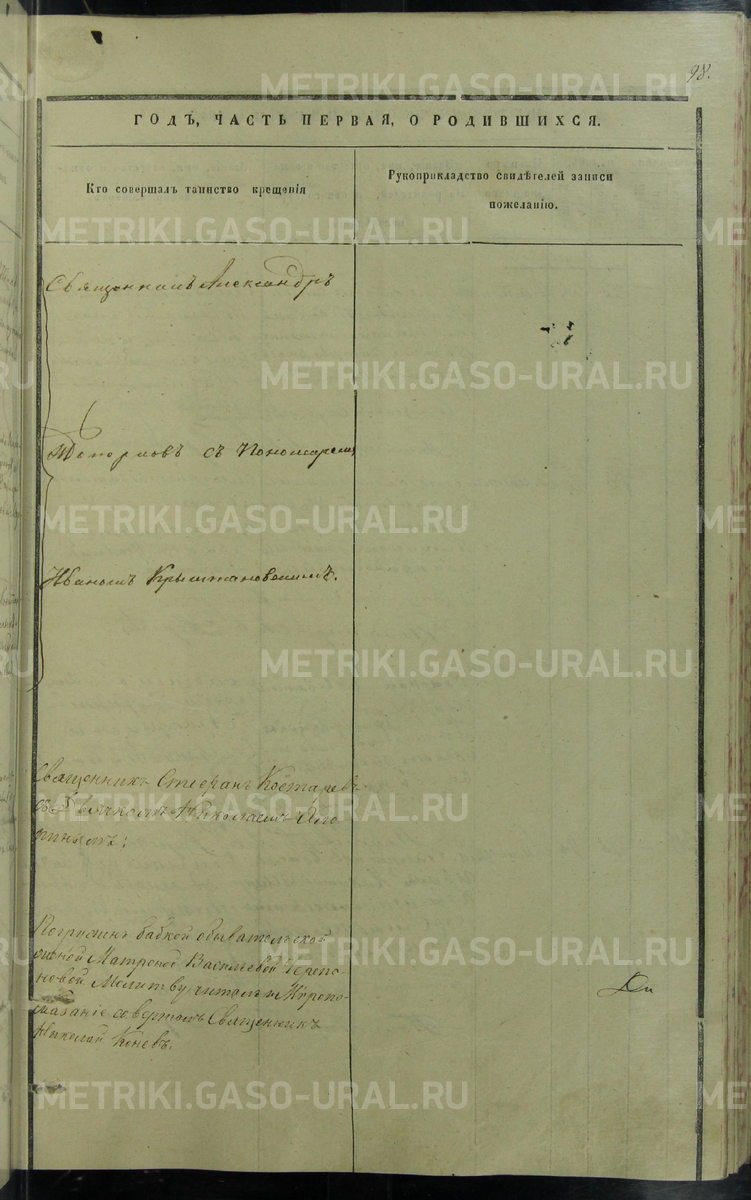 98.
ГОДЪ, ЧАСТЬ ПЕРВАЯ, О РОДИВШИХСЯ.
Кто совершалъ таинство крещенія
Рукоприкладство свидѣтелей записи
пожеланію.
Александръ
Топорковъ съ Пономаремъ
Иваномъ Крыжановскимъ.
Священникъ Стефанъ Костаревъ
съ Дьячкомъ Николаемъ
Погруженъ бабкой обывательской
женой Матроной Васильевой Черепа-
новой Молитву читалъ и Мѵропо-
мазаніе совершалъ Священникъ
Николай Коневъ.
METRIKI.GASO-URAL.RU
METRIKI.GASO-URAL.RU
METRIKI.GASO-URAL.RU
METRIKI.GASO-URAL.RU
METRIKI.GASO-URAL.RU
METRIKI.GASO-URAL.RU
METRIKI.GASO-URAL.RU
METRIKI.GASO-URAL.RU